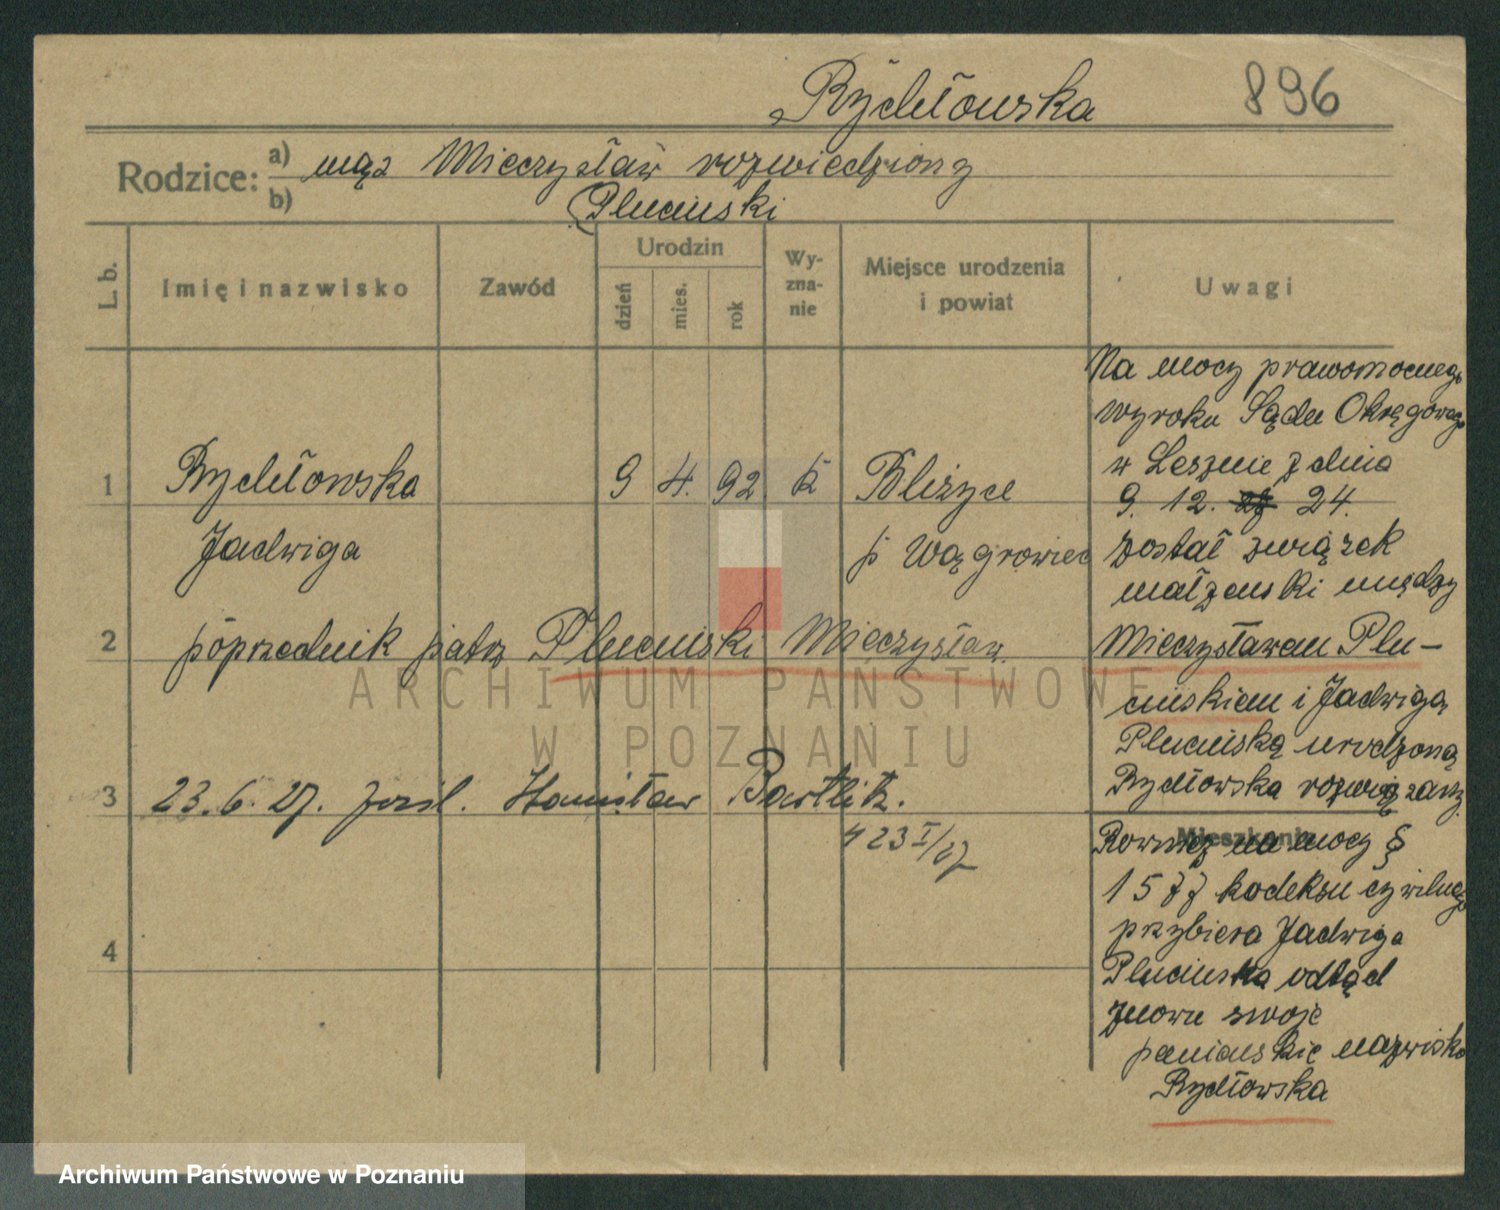 Rydłowska 896
Rodzice: a) mąż Mieczysław rozwiedziony
b) (Pluciński
L. b. Imię i nazwisko Zawód Urodzin dzień mies. rok Wyznanie Miejsce urodzenia i powiat Uwagi
1 Rydłowska 9 4. 92 k Bliżyce
Jadwiga p Wągrowiec
2 poprzednik patrz Pluciński Mieczysław.
3 23. 6. 27. Stanisław Bartlik.
423 I/27
4
Na mocy prawomocnego
wyroku Sądu Okręgowego
w Lesznie z dnia
9. 12. 24.
został związek
małżeński między
Mieczysławem Plu-
cińskiem i Jadwigą
Plucińską urodzoną
Rydłowska rozwiązany
Mieszkanie
Rownież na mocy §
1577 kodeksu cywilnego
przybiera Jadwiga
Plucińska odtąd
znowu swoje
panieńskie nazwisko
Rydłowska
ARCHIWUM PAŃSTWOWE
W POZNANIU
Archiwum Państwowe w Poznaniu